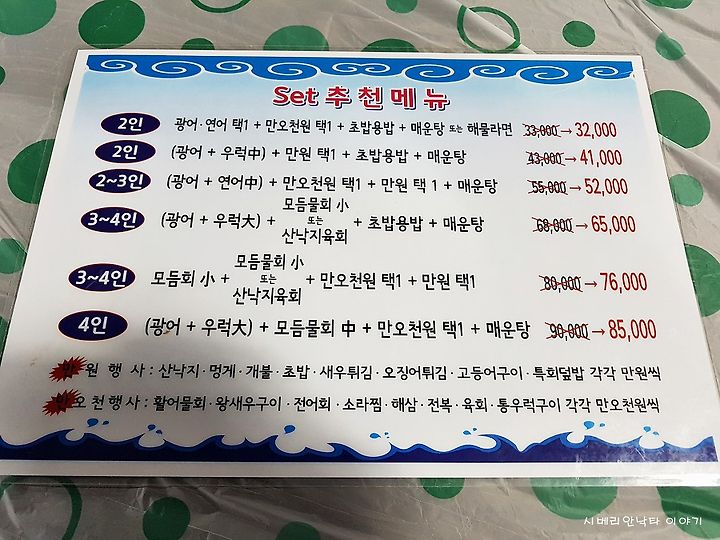 Set 추천메뉴
2인 광어·연어 택1 + 만오천원 택1 + 초밥용밥 + 매운탕 또는 해물라면 33,000 → 32,000
2인 (광어 + 우럭中) + 만원 택1 + 초밥용밥 + 매운탕 43,000 → 41,000
2~3인 (광어 + 연어中) + 만오천원 택1 + 만원 택 1 + 매운탕 55,000 → 52,000
모듬물회 小
3~4인 (광어 + 우럭大) + 또는 + 초밥용밥 + 매운탕 68,000 → 65,000
산낙지육회
모듬물회 小
3~4인 모듬회 小 + 또는 + 만오천원 택1 + 만원 택1 80,000 → 76,000
산낙지육회
4인 (광어 + 우럭大) + 모듬물회 中 + 만오천원 택1 + 매운탕 90,000 → 85,000
만원 행사 : 산낙지 · 멍게 · 개불 · 초밥 · 새우튀김 · 오징어튀김 · 고등어구이 · 특회덮밥 각각 만원씩
만오천행사 : 활어물회 · 왕새우구이 · 전어회 · 소라찜 · 해삼 · 전복 · 육회 · 통우럭구이 각각 만오천원씩
시베리안낙타 이야기